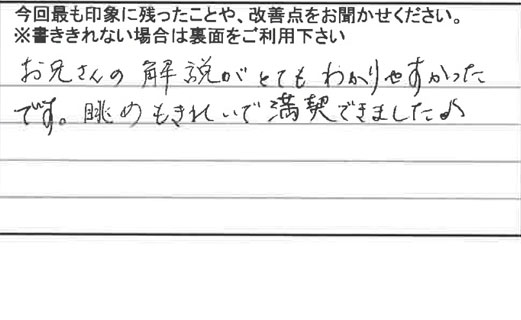 今回最も印象に残ったことや、改善点をお聞かせください。
※書ききれない場合は裏面をご利用下さい
お兄さんの解説がとてもわかりやすかった
です。眺めもきれいで満契できました♪